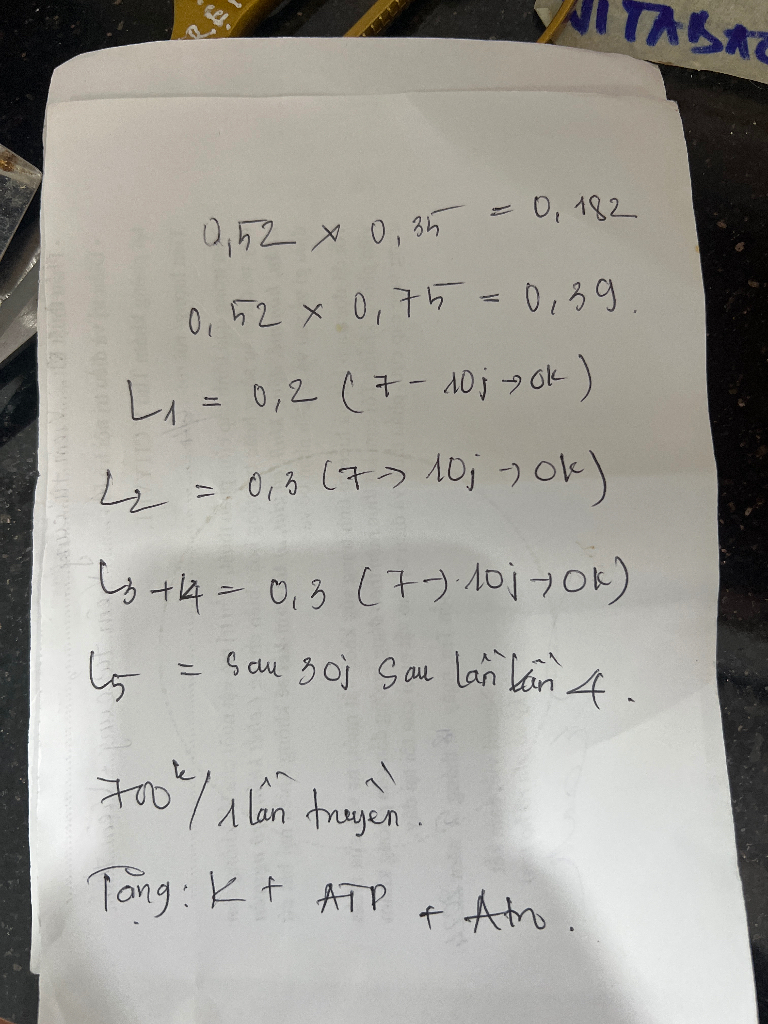 VITABAC
0,52 x 0,35 = 0,182
0,52 x 0,75 = 0,39.
L1 = 0,2 (7 - 10j → ok)
L2 = 0,3 (7 → 10j → ok)
L3 + L4 = 0,3 (7 → 10j → ok)
L5 = sau 30j sau lần 4.
700k/1 lần truyền.
Tặng: K + ATP + Atro.